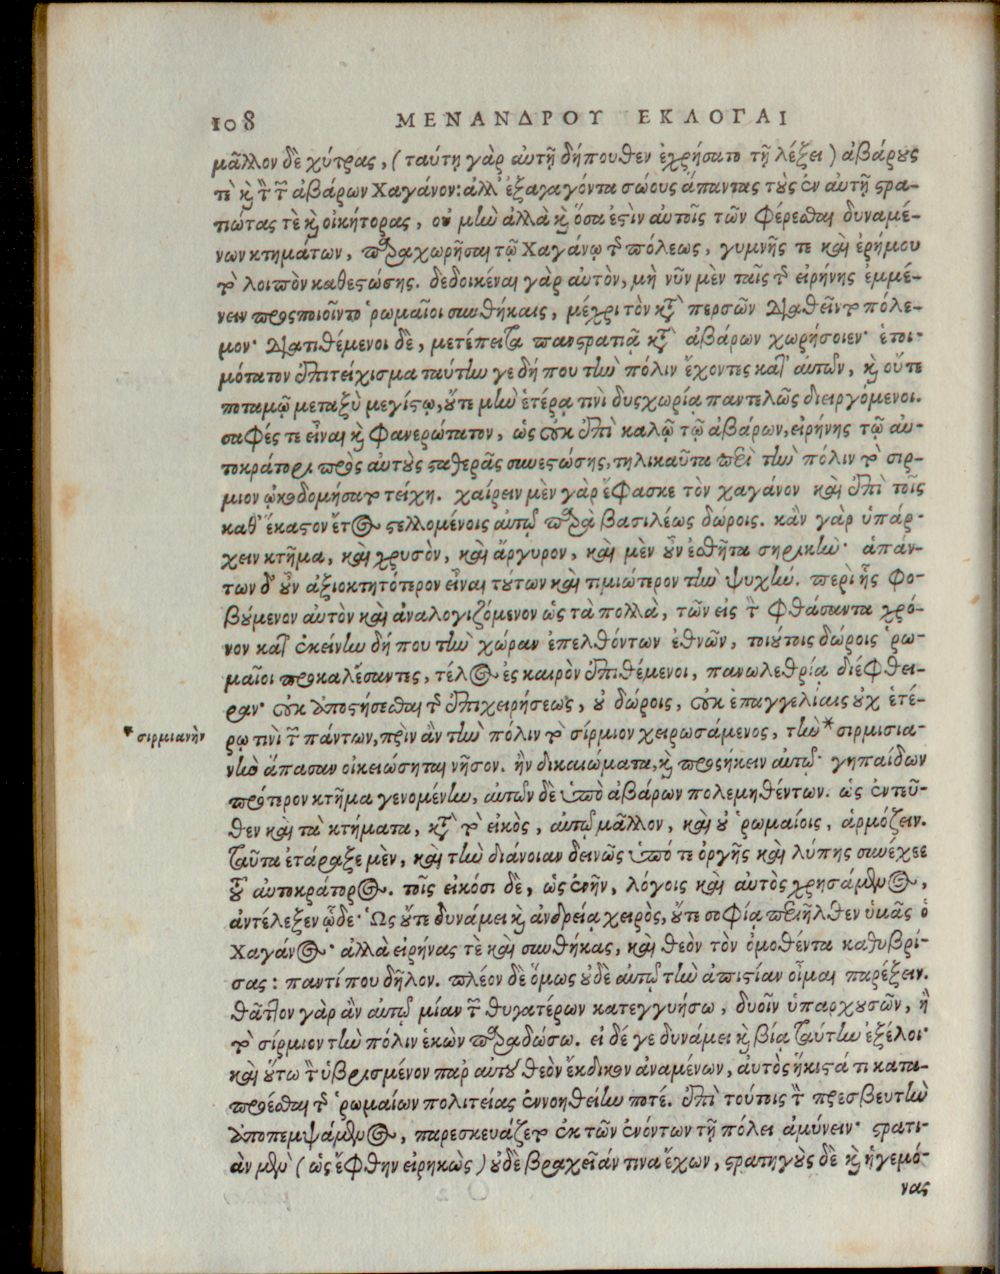 108 ΜΕΝΑΝΔΡΟΥ ΕΚΛΟΓΑΙ
μᾶλλον δὲ χύτρας, (ταύτῃ γὰρ αὐτῇ δήπουθεν ἐχρήσατο τῇ λέξει) ἀβάρους
τὲ καὶ τὸν τῶν ἀβάρων Χαγάνον: ἀλλ' ἐξαγαγόντα σώους ἅπαντας τοὺς ἐν αὐτῇ στρα-
τιώτας τὲ καὶ οἰκήτορας, οὐ μὴν ἀλλὰ καὶ ὅσα ἐστὶν αὐτοῖς τῶν φέρεσθαι δυναμέ-
νων κτημάτων, παραχωρῆσαι τῷ Χαγάνῳ τῆς πόλεως, γυμνῆς τε καὶ ἐρήμου
τὸ λοιπὸν καθεστώσης. δεδοικέναι γὰρ αὐτὸν, μὴ νῦν μὲν ταῖς τῆς εἰρήνης ἐμμέ-
νειν προσποιοῖντο ῥωμαῖοι συνθήκαις, μέχρι τὸν κατὰ περσῶν διαθεῖντο πόλε-
μον· διατιθέμενοι δὲ, μετέπειτα πανστρατιᾷ κατὰ ἀβάρων χωρήσοιεν· ἑτοι-
μότατον ἐπιτείχισμα ταύτην γε δήπου τὴν πόλιν ἔχοντες κατ' αὐτῶν, καὶ οὔτε
ποταμῷ μεταξὺ μεγίστῳ, οὔτε μὴν ἑτέρα τινὶ δυσχωρία παντελῶς διειργόμενοι.
σαφές τε εἶναι καὶ φανερώτατον, ὡς οὐκ ἐπὶ καλῷ τῷ ἀβάρων, εἰρήνης τῷ αὐ-
τοκράτορι πρὸς αὐτοὺς σταθερᾶς συνεστώσης, τηλικαῦτα περὶ τὴν πόλιν τὸ σιρ-
μιον ᾠκοδομήσατο τείχη. χαίρειν μὲν γὰρ ἔφασκε τὸν χαγάνον καὶ ἐπὶ τοῖς
καθ' ἕκαστον ἔτος στελλομένοις αὐτῷ παρὰ βασιλέως δώροις. κἂν γὰρ ὑπάρ-
χειν κτῆμα, καὶ χρυσὸν, καὶ ἄργυρον, καὶ μὲν οὖν ἐσθῆτα σηρικὴν· ἁπάν-
των δ' οὖν ἀξιοκτητότερον εἶναι τούτων καὶ τιμιώτερον τὴν ψυχήν. περὶ ἧς φο-
βούμενον αὐτὸν καὶ ἀναλογιζόμενον ὡς τὰ πολλὰ, τῶν εἰς τὸν φθάσαντα χρό-
νον κατ' ἐκείνην δήπου τὴν χώραν ἐπελθόντων ἐθνῶν, τοιούτοις δώροις ῥω-
μαῖοι προκαλέσαντες, τέλος ἐς καιρὸν ἐπιθέμενοι, πανωλεθρίᾳ διέφθει-
ραν· οὐκ ἀποστήσεσθαι τῆς ἐπιχειρήσεως, οὐ δώροις, οὐκ ἐπαγγελίαις οὐχ ἑτέ-
ρῳ τινὶ τῶν πάντων, πρὶν ἂν τὴν πόλιν τὸ σίρμιον χειρωσάμενος, τὴν * σιρμισια-
* σιρμιανὴν
νὴν ἅπασαν οἰκειώσηται νῆσον. ἣν δικαιώματα, καὶ προσήκειν αὐτῷ· γηπαίδων
πρότερον κτῆμα γενομένην, αὐτῶν δὲ ὑπὸ ἀβάρων πολεμηθέντων. ὡς ἐντεῦ-
θεν καὶ τὰ κτήματα, κατὰ τὸ εἰκὸς, αὐτῷ μᾶλλον, καὶ οὐ ῥωμαίοις, ἁρμόζειν.
Ταῦτα ἐτάραξε μὲν, καὶ τὴν διάνοιαν δεινῶς ὑπό τε ὀργῆς καὶ λύπης συνέχεε
τοῦ αὐτοκράτορος. τοῖς εἰκόσι δὲ, ὡς ἐνῆν, λόγοις καὶ αὐτὸς χρησάμενος,
ἀντέλεξεν ὧδε· Ὡς οὔτε δυνάμει καὶ ἀνδρεία χειρὸς, οὔτε σοφία περιῆλθεν ὑμᾶς ὁ
Χαγάνος· ἀλλὰ εἰρήνας τὲ καὶ συνθήκας, καὶ θεὸν τὸν ὀμοθέντα καθυβρί-
σας: παντί που δῆλον. πλέον δὲ ὅμως οὐδὲ αὐτῷ τὴν ἀπιστίαν οἶμαι παρέξειν.
θᾶττον γὰρ ἂν αὐτῷ μίαν τῶν θυγατέρων κατεγγυήσω, δυοῖν ὑπαρχουσῶν, ἢ
τὸ σίρμιον τὴν πόλιν ἑκὼν παραδώσω. εἰ δέ γε δυνάμει καὶ βία ταύτην ἐξέλοι·
καὶ οὕτω τὸν ὑβρισμένον παρ' αὐτοῦ θεὸν ἔκδικον ἀναμένων, αὐτὸς ἥκιστά τι κατα-
προέσθαι τῆς ῥωμαίων πολιτείας ἐννοηθείην ποτέ. ἐπὶ τούτοις τὸν πρεσβευτὴν
ἀποπεμψάμενος, παρεσκευάζετο ἐκ τῶν ἐνόντων τῇ πόλει ἀμύνειν· στρατι-
ὰν μὲν (ὡς ἔφθην εἰρηκὼς) οὐδὲ βραχεῖάν τινα ἔχων, στρατηγοὺς δὲ καὶ ἡγεμό-
νας